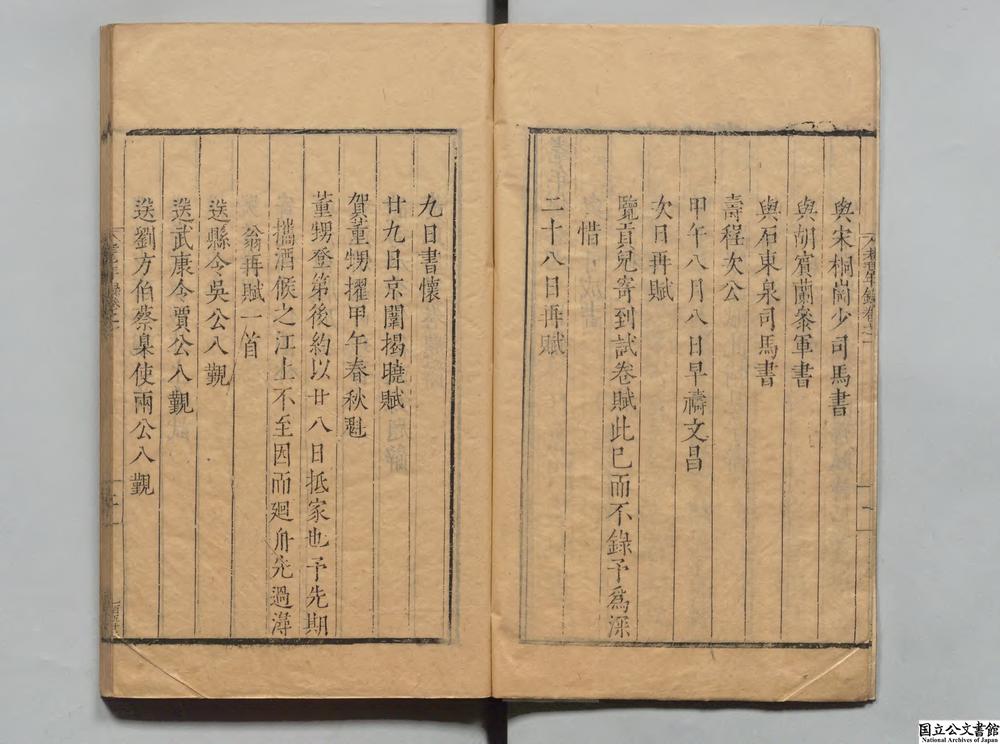 與宋桐崗少司馬書
與胡賓蘭叅軍書
與石東泉司馬書
壽程次公
甲午八月八日早禱文昌
次日再賦
覽貢兒寄到試卷賦此巳而不錄予爲深
惜
二十八日再賦
九日書懷
廿九日京闈揭曉賦
賀董甥擢甲午春秋魁
董甥登第後約以廿八日抵家也予先期
攜酒候之江上不至因而廻舟先過漳
翁再賦一首
送縣令吳公入覲
送武康令賈公入覲
送劉方伯蔡臬使兩公入覲
国立公文書館
National Archives of Japan